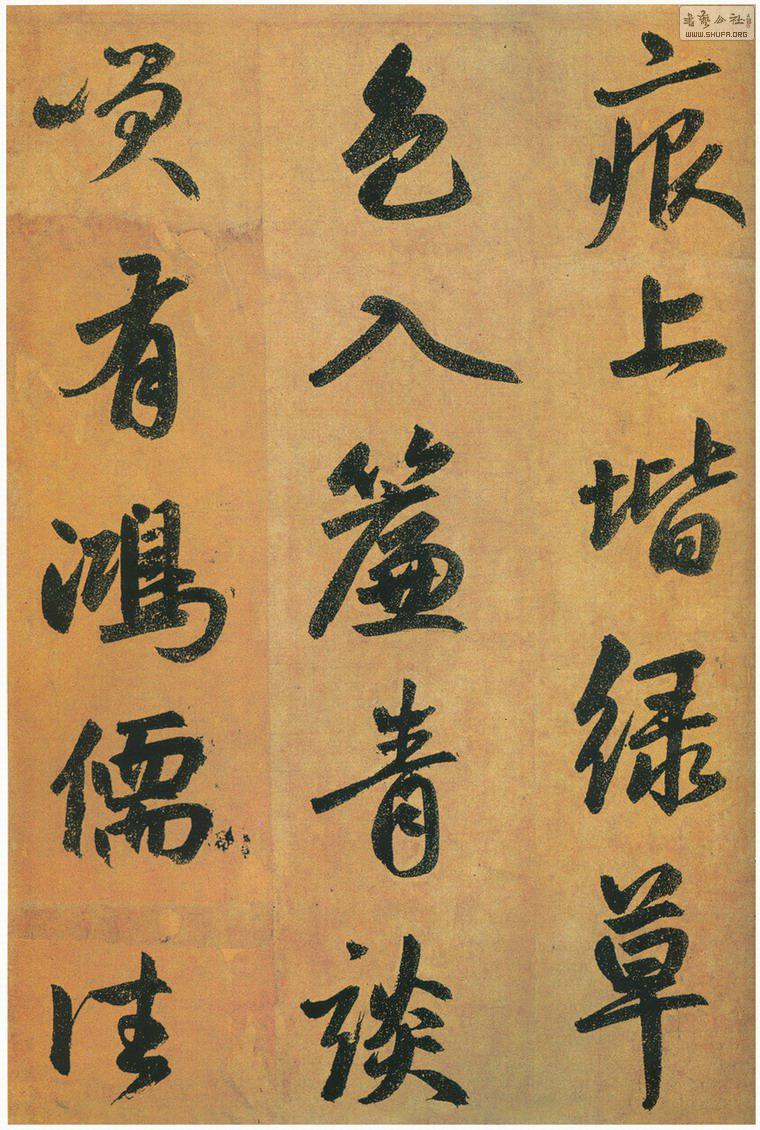 痕上堦緑草
色入簾青談
咲有鴻儒往
書藝公社
WWW.SHUFA.ORG